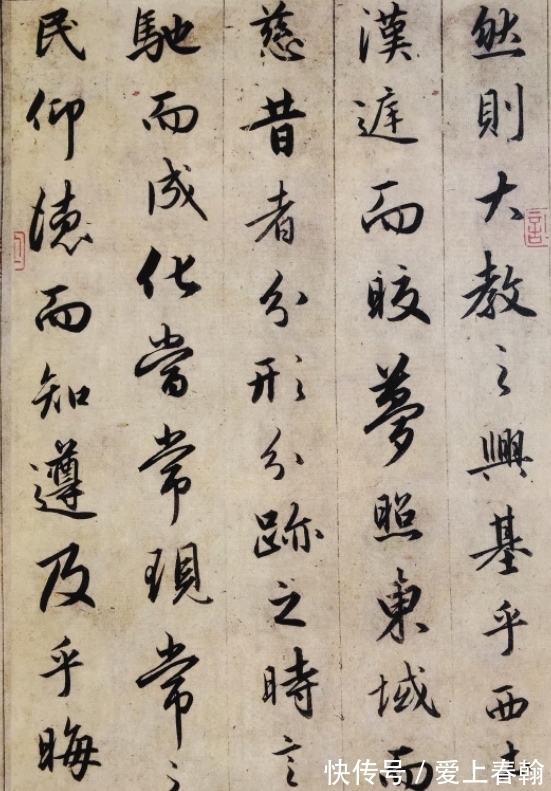 然則大教之興基乎西
漢庭而皎夢照東域而
慈昔者分形分跡之時言
馳而成化當常現常之
民仰德而知遵及乎晦
快传号 / 爱上春翰